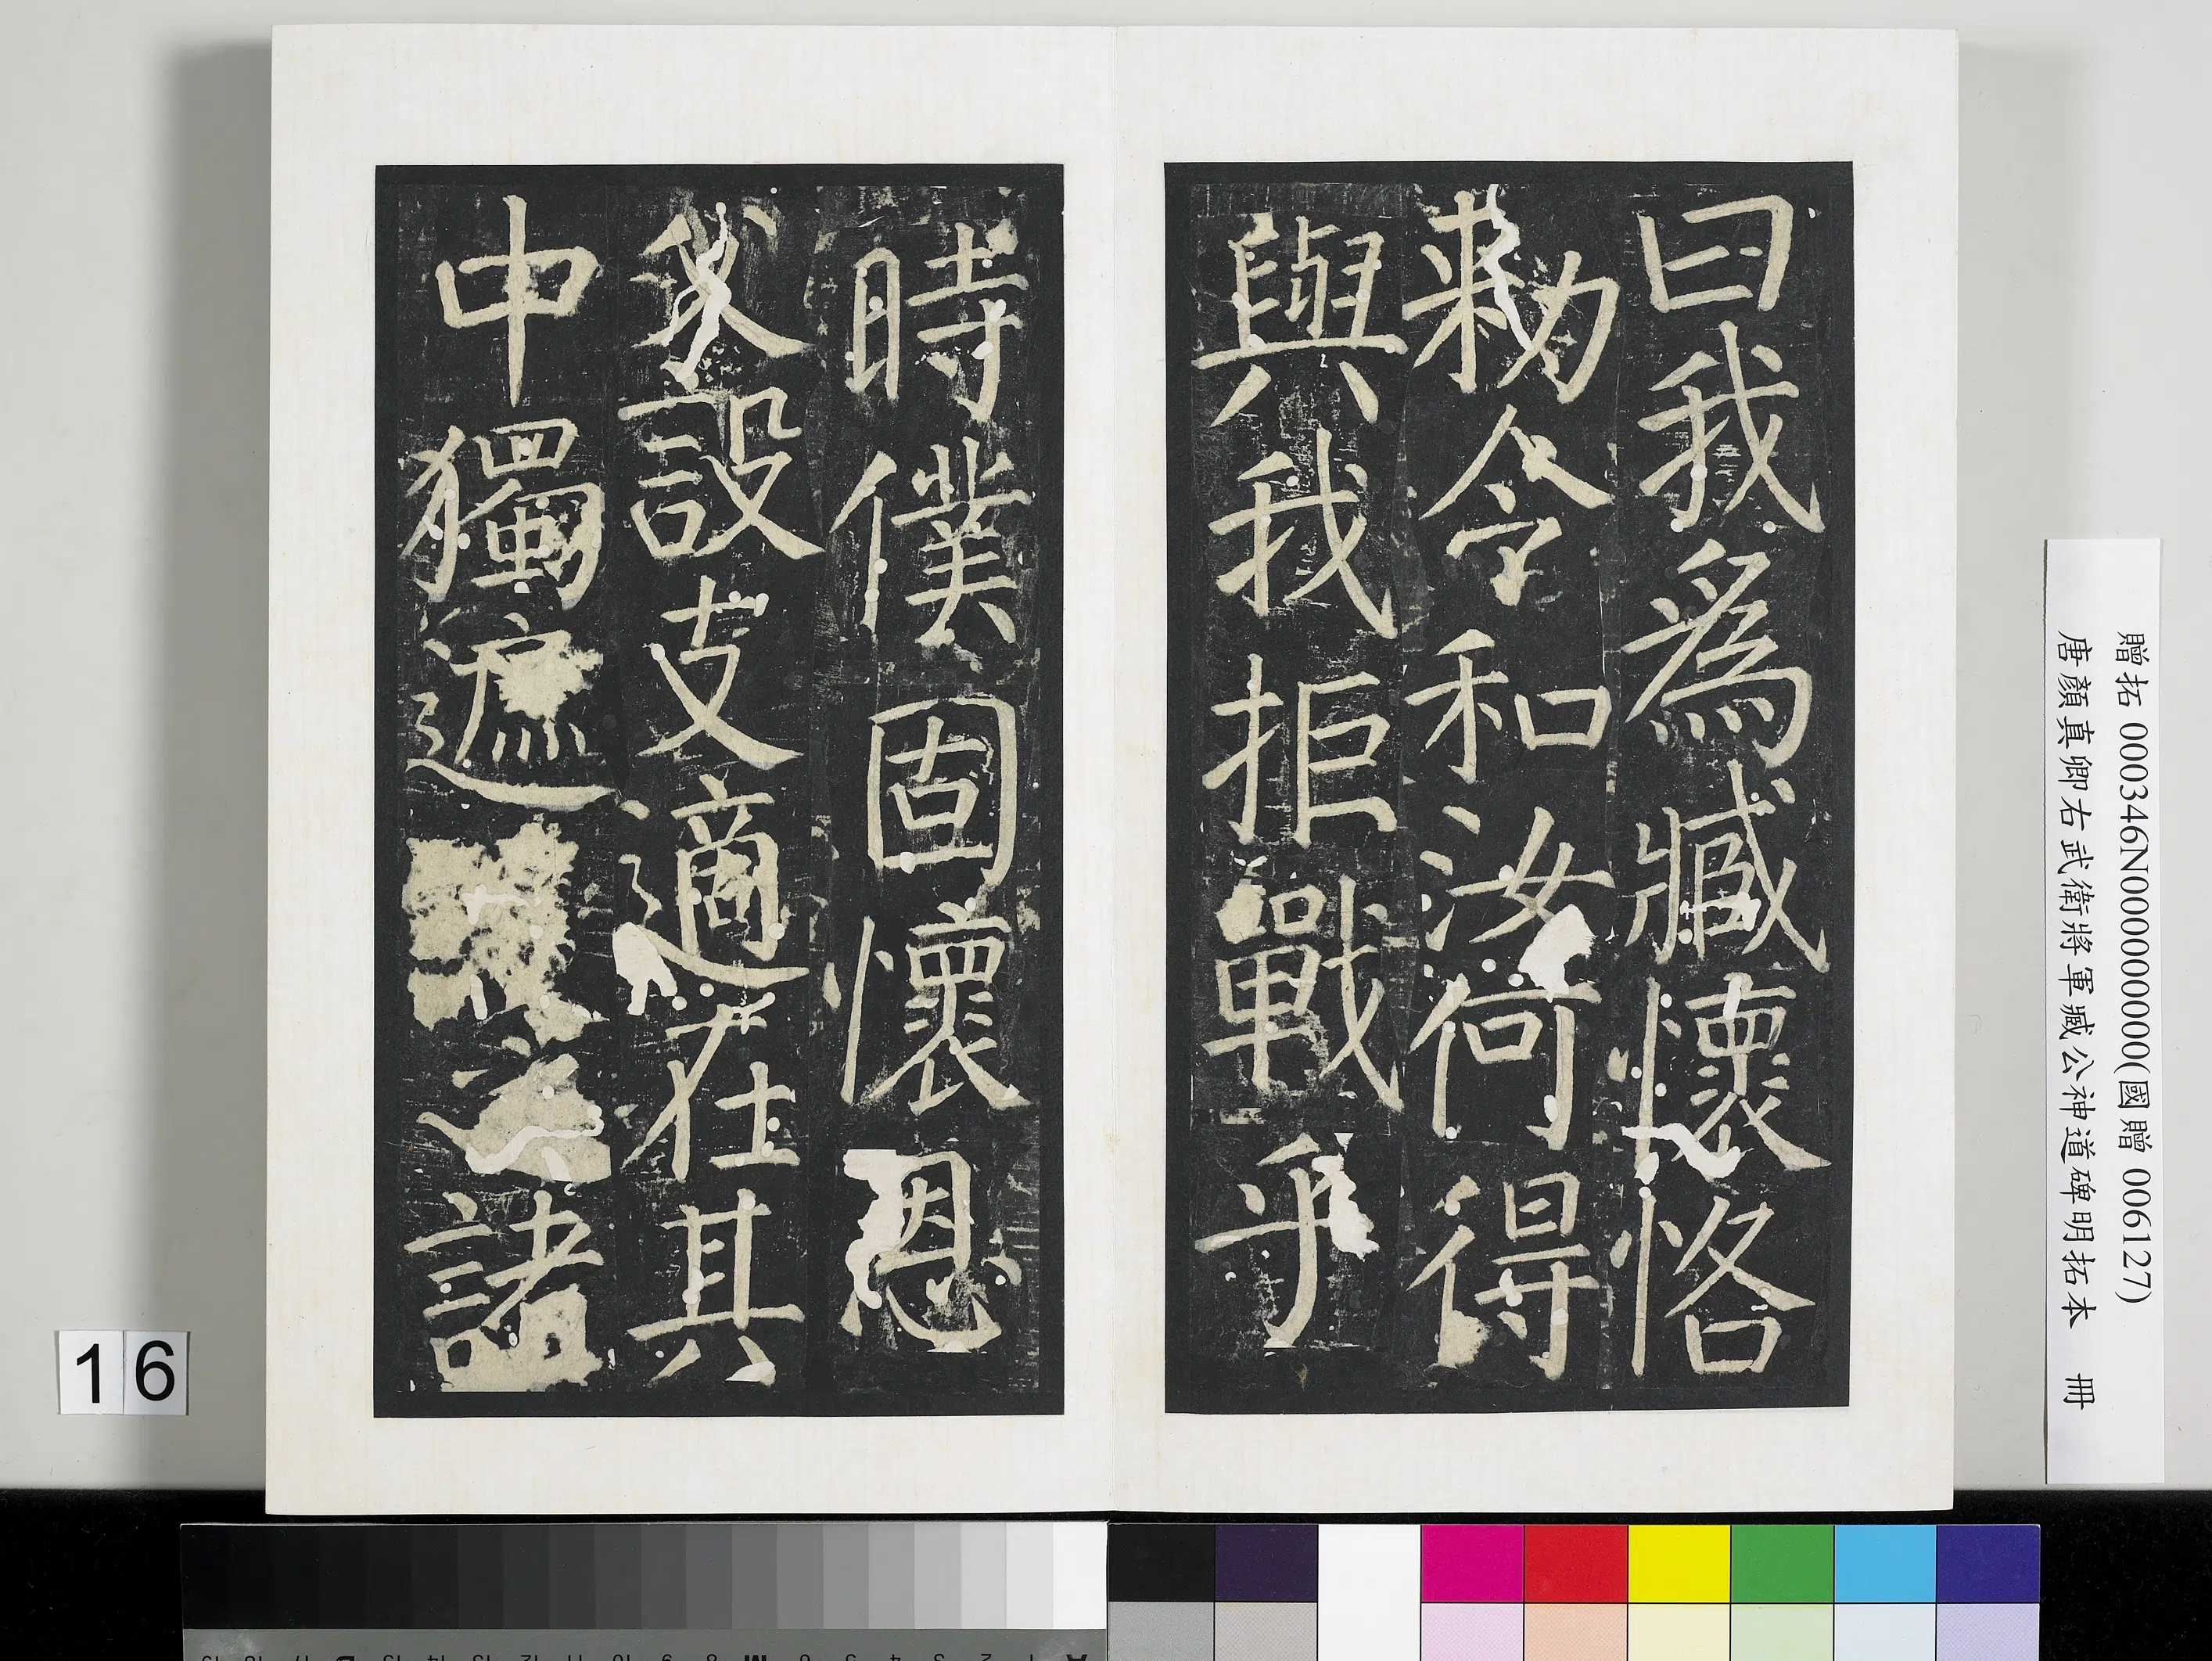 曰我為臧懷恪
敕令和汝何得
與我拒戰乎
時僕固懷恩
父設支適在其
中獨遮
諸
贈拓 000346N000000000(國贈 006127)
唐顏真卿右武衛將軍臧公神道碑明拓本 冊
16